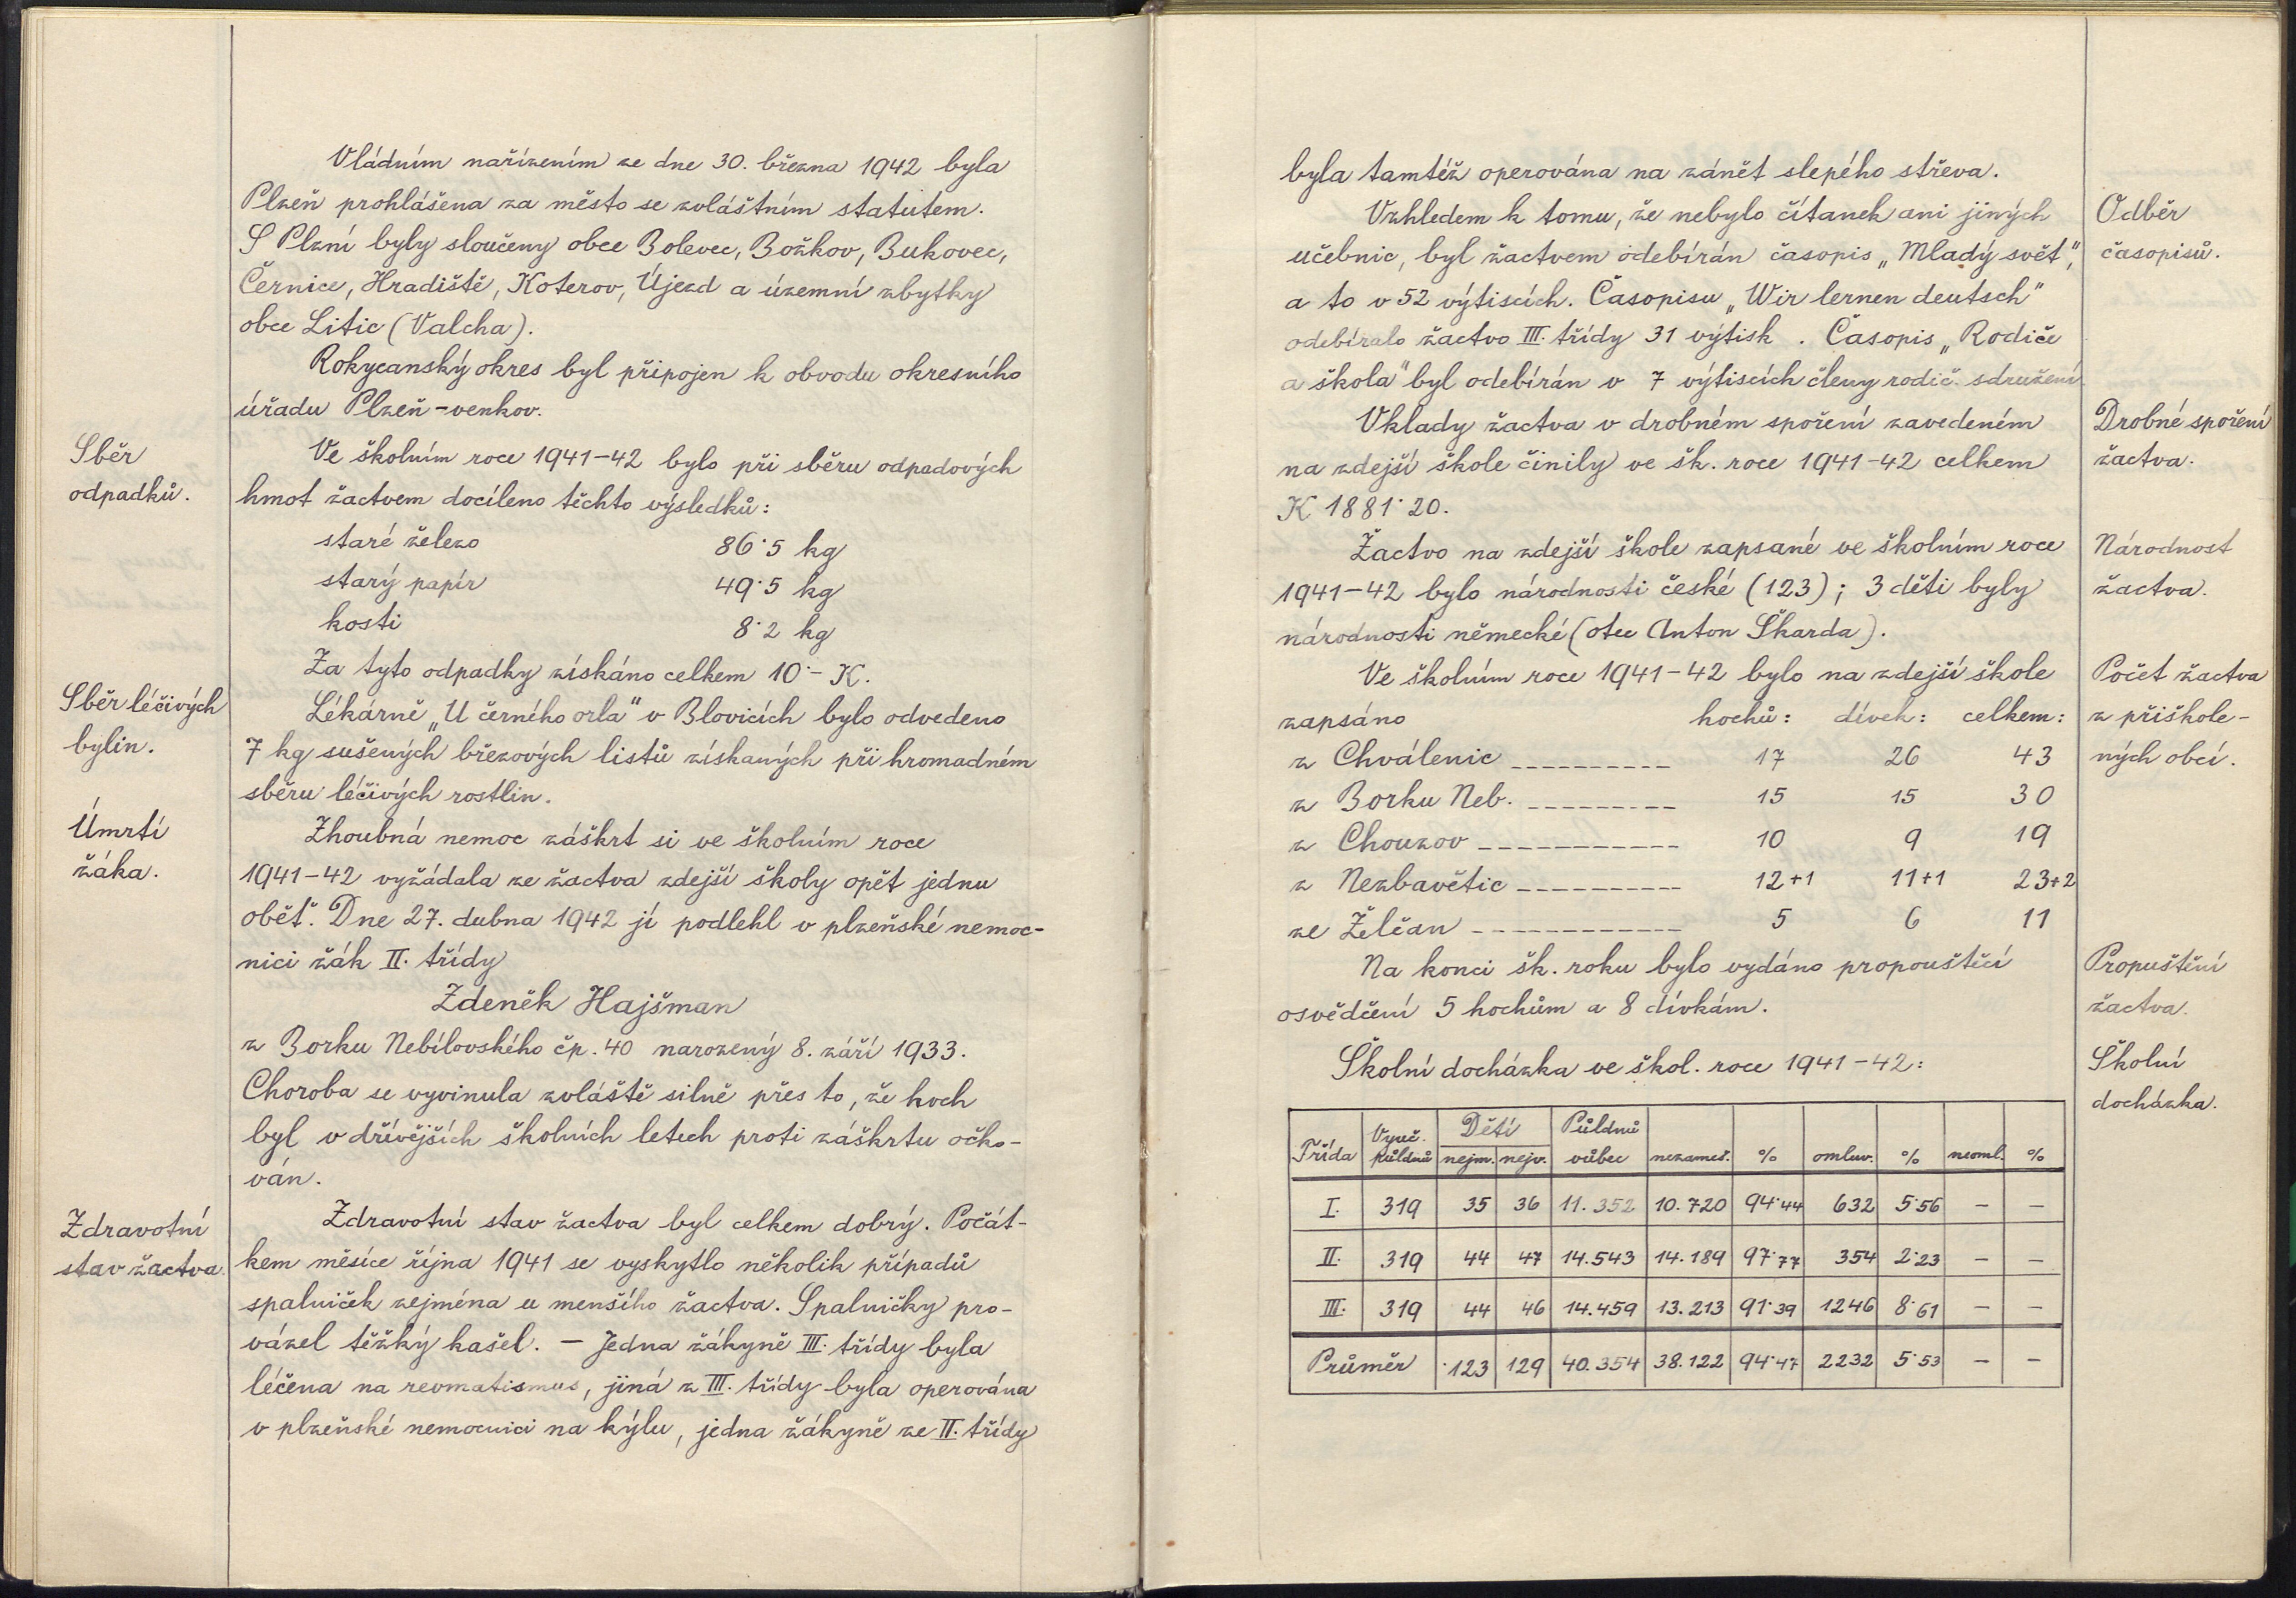 Vládním nařízením ze dne 30. března 1942 byla
Plzeň prohlášena za město se zvláštním statutem.
S Plzní byly sloučeny obce Bolevec, Božkov, Bukovec,
Černice, Hradiště, Koterov, Újezd a územní zbytky
obce Litic (Valcha).
Rokycanský okres byl připojen k obvodu okresního
úřadu Plzeň-venkov.
Sběr
odpadků.
Ve školním roce 1941-42 bylo při sběru odpadových
hmot žactvem docíleno těchto výsledků:
staré železo 86·5 kg
starý papír 49·5 kg
kosti 8·2 kg
Za tyto odpadky získáno celkem 10·- K.
Sběr léčivých
bylin.
Lékárně „U černého orla" v Blovicích bylo odvedeno
7 kg sušených březových listů získaných při hromadném
sběru léčivých rostlin.
Úmrtí
žáka.
Zhoubná nemoc záškrt si ve školním roce
1941-42 vyžádala ze žactva zdejší školy opět jednu
oběť. Dne 27. dubna 1942 jí podlehl v plzeňské nemoc-
nici žák II. třídy
Zdeněk Hajšman
z Borku Nebílovského čp. 40 narozený 8. září 1933.
Choroba se vyvinula zvláště silně přes to, že hoch
byl v dřívějších školních letech proti záškrtu očko-
ván.
Zdravotní
stav žactva.
Zdravotní stav žactva byl celkem dobrý. Počát-
kem měsíce října 1941 se vyskytlo několik případů
spalniček zejména u menšího žactva. Spalničky pro-
vázel těžký kašel. - Jedna žákyně III. třídy byla
léčena na revmatismus, jiná z III. třídy byla operována
v plzeňské nemocnici na kýlu, jedna žákyně ze II. třídy
byla tamtéž operována na zánět slepého střeva.
Odběr
časopisů.
Vzhledem k tomu, že nebylo čítanek ani jiných
učebnic, byl žactvem odebírán časopis „Mladý svět",
a to v 52 výtiscích. Časopisu „Wir lernen deutsch"
odebíralo žactvo III. třídy 31 výtisk . Časopis „Rodiče
a škola" byl odebírán v 7 výtiscích členy rodič. sdružení
Drobné spoření
žactva.
Vklady žactva v drobném spoření zavedeném
na zdejší škole činily ve šk. roce 1941-42 celkem
K 1881·20.
Národnost
žactva.
Žactvo na zdejší škole zapsané ve školním roce
1941-42 bylo národnosti české (123); 3 děti byly
národnosti německé (otec Anton Škarda).
Počet žactva
z přiškole-
ných obcí.
Ve školním roce 1941-42 bylo na zdejší škole
zapsáno hochů: dívek: celkem:
z Chválenic 17 26 43
z Borku Neb. 15 15 30
z Chouzov 10 9 19
z Nezbavětic 12+1 11+1 23+2
ze Želčan 5 6 11
Propuštění
žactva.
Na konci šk. roku bylo vydáno propouštěcí
osvědčení 5 hochům a 8 dívkám.
Školní
docházka.
Školní docházka ve škol. roce 1941-42:
Třída Vyuč. půldnů Dětí nejm. nejv. Půldnů vůbec nezameš. % omluv. % neoml. %
I. 319 35 36 11.352 10.720 94·44 632 5·56 - -
II. 319 44 47 14.543 14.189 97·77 354 2·23 - -
III. 319 44 46 14.459 13.213 91·39 1246 8·61 - -
Průměr 123 129 40.354 38.122 94·47 2232 5·53 - -